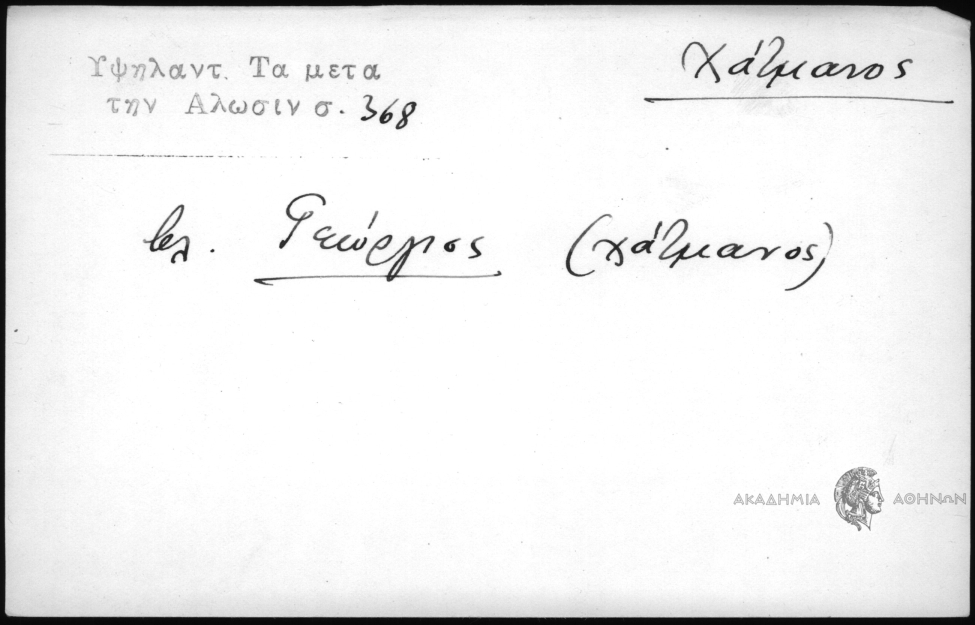 Υψηλαντ. Τα μετα
την Αλωσιν σ. 368
Χάτμανος
βλ. Γεώργιος (χάτμανος)
ΑΚΑΔΗΜΙΑ ΑΘΗΝΩΝ